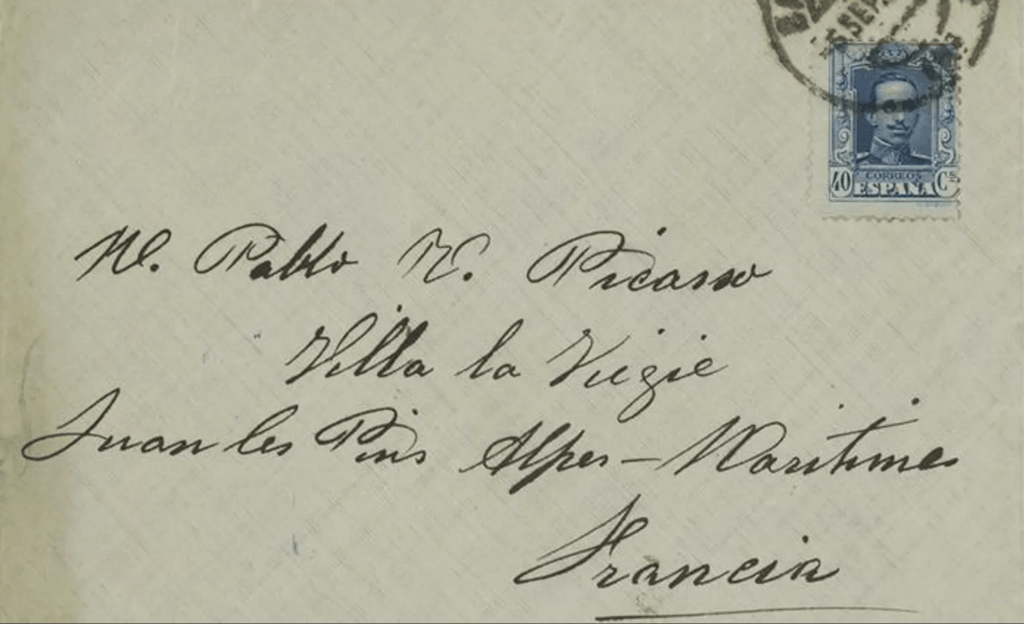 40 CORREOS Cs
ESPAÑA
M. Pablo R. Picasso
Villa la Vigie
Juan les Pins Alpes-Maritimes
Francia